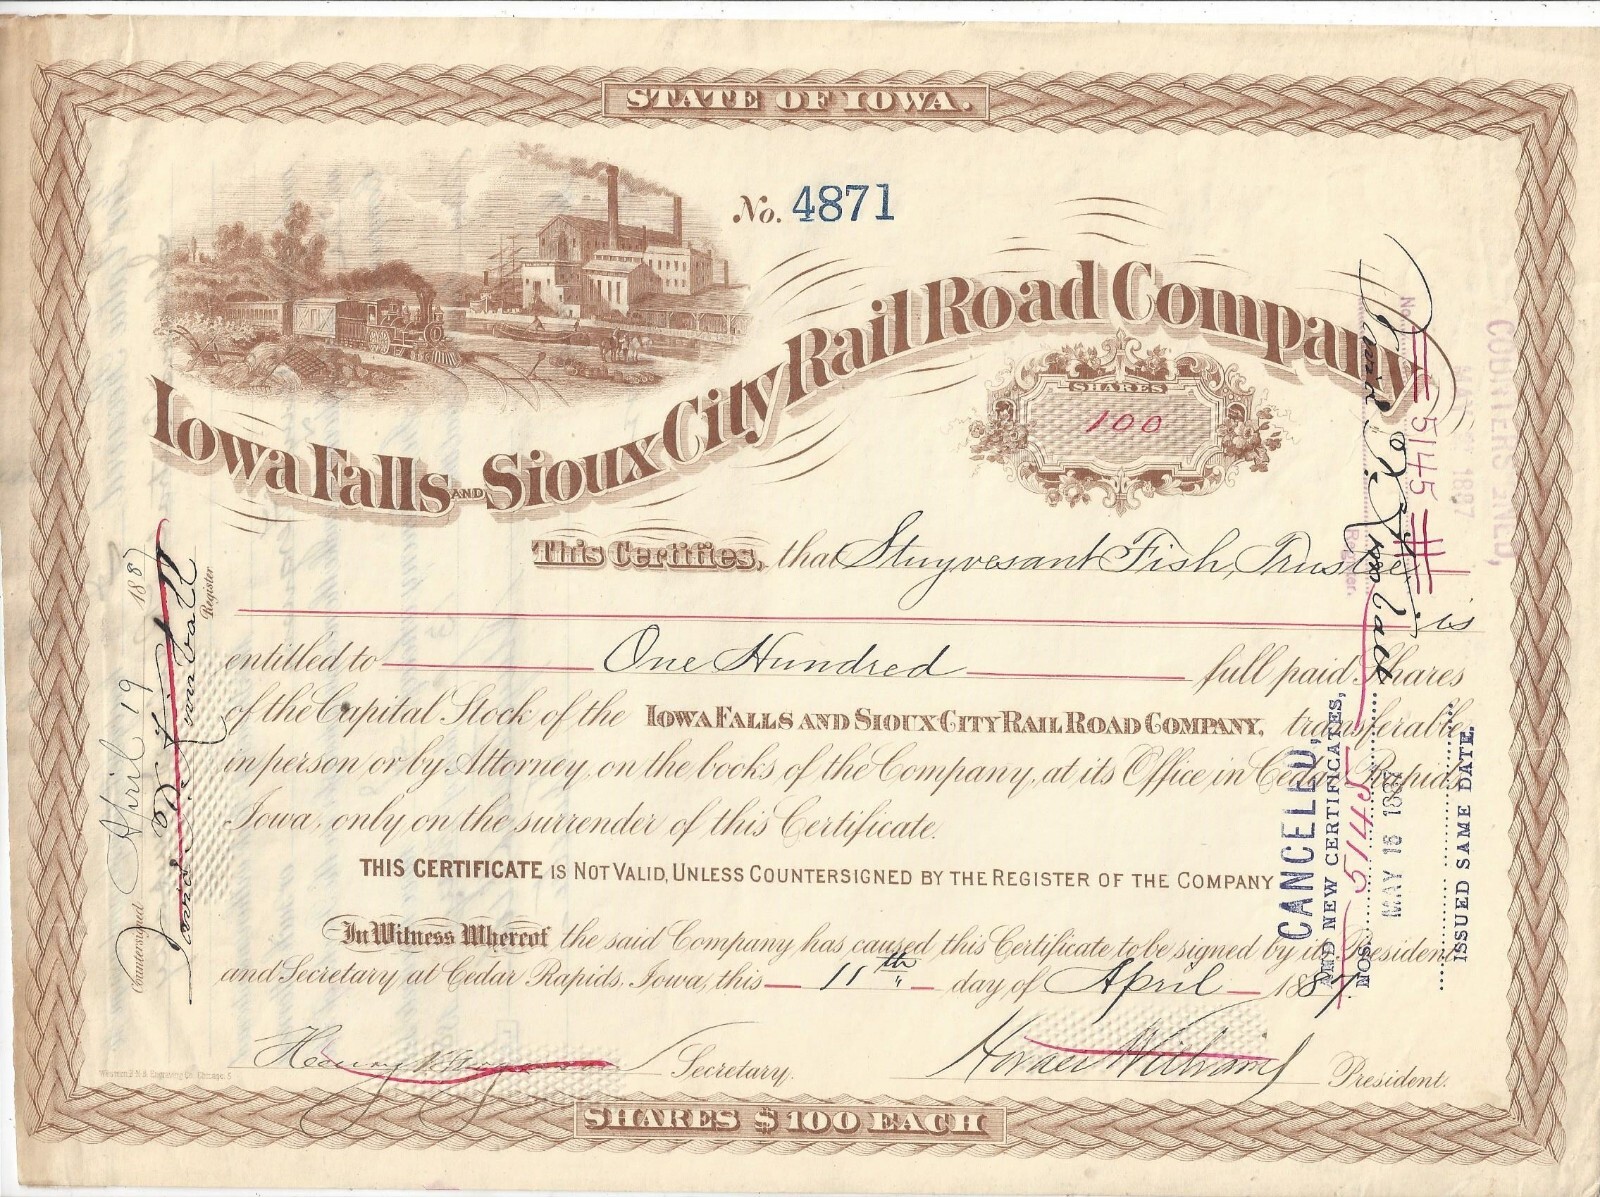 STATE OF IOWA.
No. 4871
Iowa Falls AND Sioux City Rail Road Company
SHARES
100
This Certifies, that Stuyvesant Fish, Trustee
is
entitled to One Hundred full paid Shares
of the Capital Stock of the IOWA FALLS AND SIOUX CITY RAIL ROAD COMPANY, transferable
in person or by Attorney, on the books of the Company, at its Office in Cedar Rapids
Iowa, only on the surrender of this Certificate.
THIS CERTIFICATE IS NOT VALID, UNLESS COUNTERSIGNED BY THE REGISTER OF THE COMPANY
In Witness Whereof the said Company has caused this Certificate to be signed by its President
and Secretary at Cedar Rapids, Iowa, this 11th day of April 1887
Henry Secretary.
Horace Williams President.
SHARES $100 EACH
Western B.N. & Engraving Co. Chicago.
Countersigned April 19 1887
David P. Kimball
Register
CANCELLED,
AND NEW CERTIFICATES,
NOS. 5145
MAY 16 1887
ISSUED SAME DATE.
David P. Kimball
Register.
No. 5145
MAY 1887
COUNTERSIGNED,